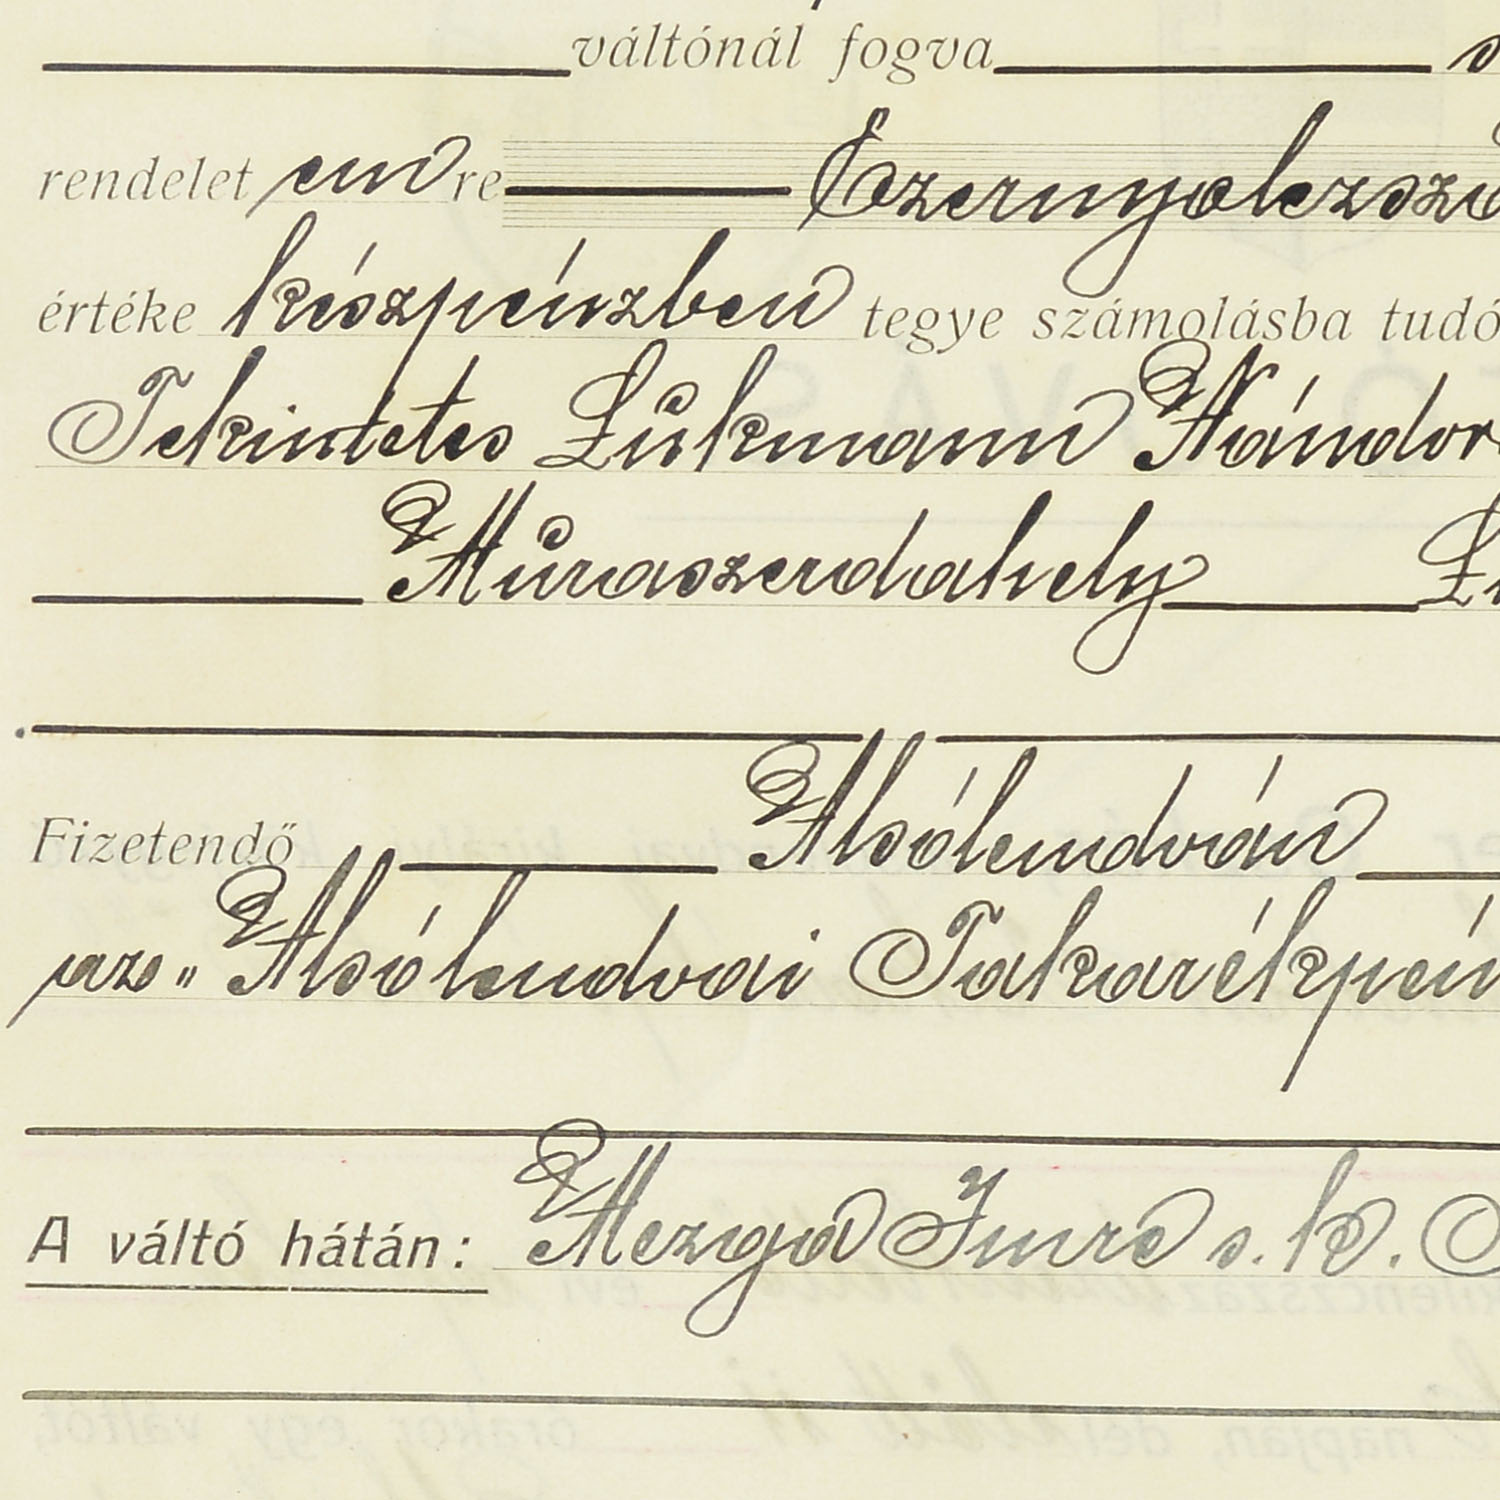 váltónál fogva
rendelet em re Ezernyolczszá
értéke készpénzben tegye számolásba tudó
Tekintetes Lukmann Nándor
Muraszerdahely
Fizetendő Alsólendván
az „Alsólendvai Takarékpén
A váltó hátán: Mezga Imre s. k.